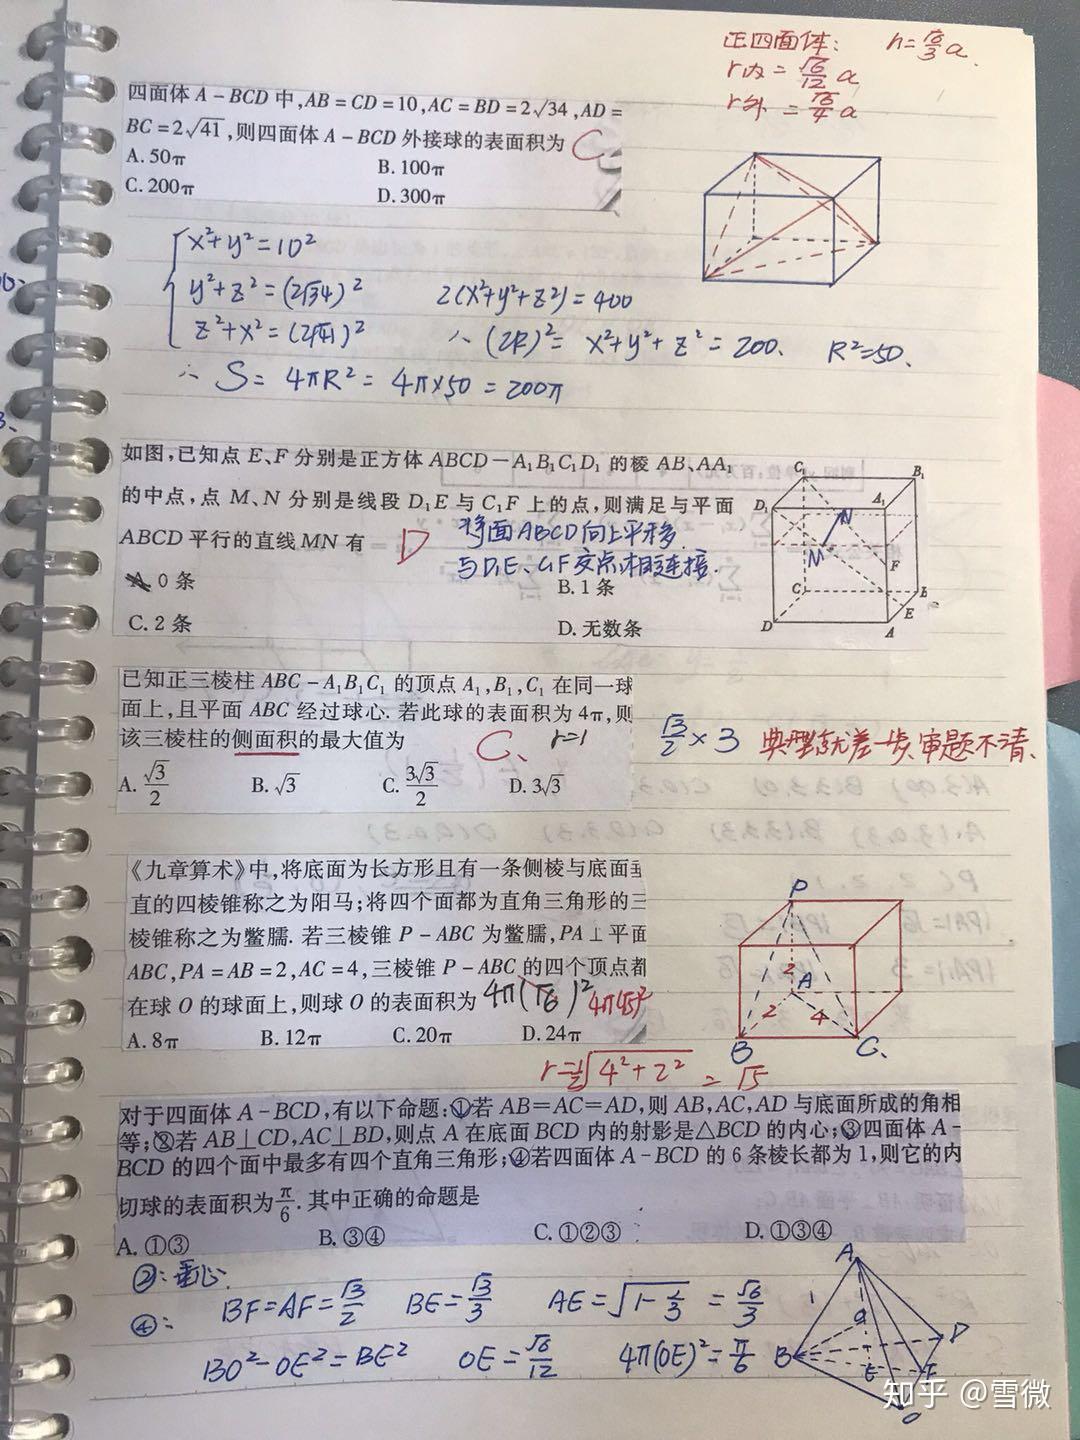 正四面体: h=√6/3 a.
r内=√6/12 a
r外=√6/4 a
四面体 A－BCD 中,AB＝CD＝10,AC＝BD＝2√34,AD＝
BC＝2√41,则四面体 A－BCD 外接球的表面积为 C
A. 50π B. 100π
C. 200π D. 300π
x²+y²=10²
y²+z²=(2√34)² 2(x²+y²+z²)=400
z²+x²=(2√41)² ∴(2R)²= x²+y²+z²=200. R²=50.
∴ S=4πR²=4π×50=200π
如图,已知点 E、F 分别是正方体 ABCD－A₁B₁C₁D₁ 的棱 AB、AA₁
的中点,点 M、N 分别是线段 D₁E 与 C₁F 上的点,则满足与平面
ABCD 平行的直线 MN 有 D
将面ABCD向上平移
与D₁E、C₁F交点,相连接.
A. 0 条 B. 1 条
C. 2 条 D. 无数条
C₁ B₁
D₁ A₁
N
M
F
C B
E
D A
已知正三棱柱 ABC－A₁B₁C₁ 的顶点 A₁,B₁,C₁ 在同一球
面上,且平面 ABC 经过球心. 若此球的表面积为 4π,则
该三棱柱的侧面积的最大值为 C. r=1
√3/2 ×3 审题不清、
A. √3/2 B. √3 C. 3√3/2 D. 3√3
《九章算术》中,将底面为长方形且有一条侧棱与底面垂
直的四棱锥称之为阳马;将四个面都为直角三角形的三
棱锥称之为鳖臑. 若三棱锥 P－ABC 为鳖臑,PA⊥平面
ABC,PA＝AB＝2,AC＝4,三棱锥 P－ABC 的四个顶点都
在球 O 的球面上,则球 O 的表面积为 4π(√6)² 4π(√5)²
A. 8π B. 12π C. 20π D. 24π
r=½√4²+2² = √5
P
2 A
2 4
B C
对于四面体 A－BCD,有以下命题:①若 AB＝AC＝AD,则 AB,AC,AD 与底面所成的角相
等;②若 AB⊥CD,AC⊥BD,则点 A 在底面 BCD 内的射影是△BCD 的内心;③四面体 A－
BCD 的四个面中最多有四个直角三角形;④若四面体 A－BCD 的 6 条棱长都为 1,则它的内
切球的表面积为π/6. 其中正确的命题是
A. ①③ B. ③④ C. ①②③ D. ①③④
②:垂心.
④: BF=AF=√3/2 BE=√3/3 AE=√1-1/3 =√6/3
BO²-OE²=BE² OE=√6/12 4π(OE)²=π/6
A
1
O
B E F D
C
知乎 @雪微